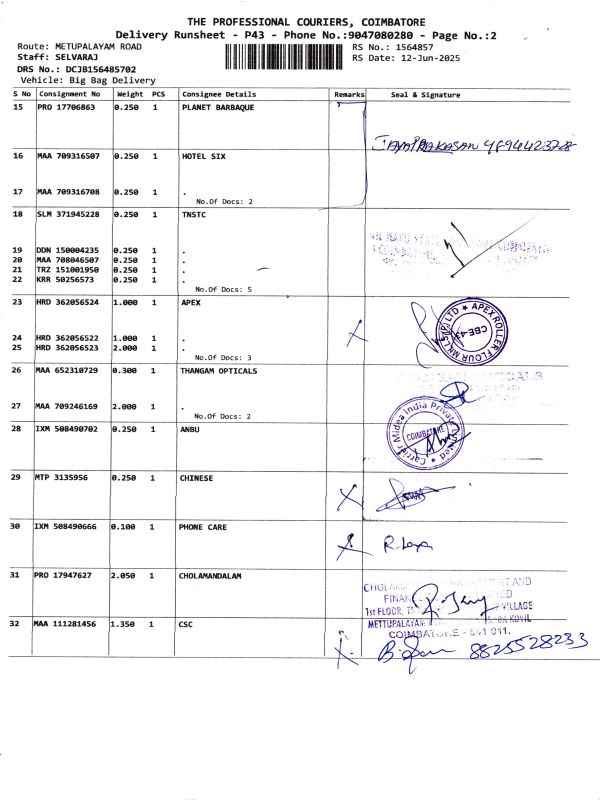 THE PROFESSIONAL COURIERS, COIMBATORE
Delivery Runsheet - P43 - Phone No.:9047080280 - Page No.:2
Route: METUPALAYAM ROAD RS No.: 1564857
Staff: SELVARAJ RS Date: 12-Jun-2025
DRS No.: DCJB156485702
Vehicle: Big Bag Delivery
S No Consignment No Weight PCS Consignee Details Remarks Seal & Signature
15 PRO 17706863 0.250 1 PLANET BARBAQUE
JAYAPRAKASAN 9894423728
16 MAA 709316507 0.250 1 HOTEL SIX
17 MAA 709316708 0.250 1 .
No.Of Docs: 2
18 SLM 371945228 0.250 1 TNSTC
19 DDN 150004235 0.250 1 .
20 MAA 708046507 0.250 1 .
21 TRZ 151001950 0.250 1 .
22 KRR 50256573 0.250 1 .
No.Of Docs: 5
23 HRD 362056524 1.000 1 APEX
APEX ROLLER FLOUR MILLS (P) LTD
CBE-43
24 HRD 362056522 1.000 1 .
25 HRD 362056523 2.000 1 .
No.Of Docs: 3
26 MAA 652310729 0.300 1 THANGAM OPTICALS
27 MAA 709246169 2.000 1 .
No.Of Docs: 2
28 IXM 508490702 0.250 1 ANBU
Carrier Midea India Private Limited
COIMBATORE
29 MTP 3135956 0.250 1 CHINESE
30 IXM 508490666 0.100 1 PHONE CARE
31 PRO 17947627 2.050 1 CHOLAMANDALAM
1st FLOOR, VILLAGE
METTUPALAYAM KOVIL
COIMBATORE - 641 011.
32 MAA 111281456 1.350 1 CSC
8825528233